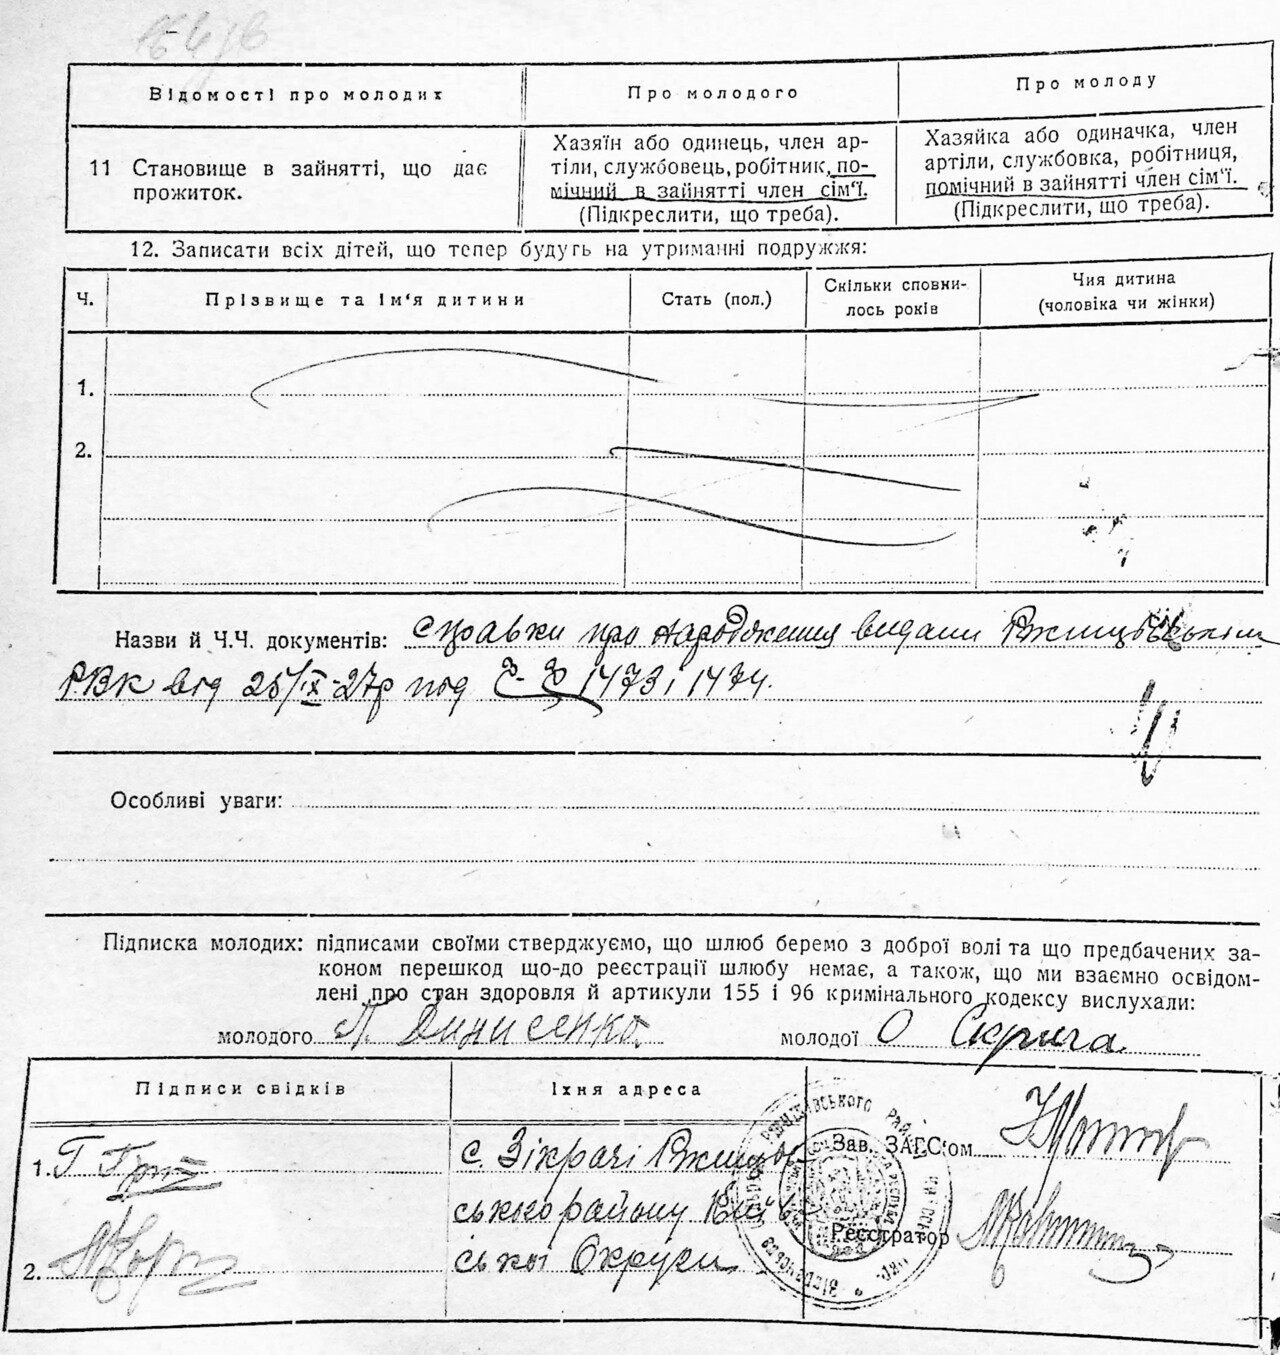 Відомості про молодих
Про молодого
Про молоду
11 Становище в зайнятті, що дає
прожиток.
Хазяїн або одинець, член ар-
тіли, службовець, робітник, по-
мічний в зайнятті член сім'ї.
(Підкреслити, що треба).
Хазяйка або одиначка, член
артіли, службовка, робітниця,
помічний в зайнятті член сім'ї.
(Підкреслити, що треба).
12. Записати всіх дітей, що тепер будуть на утриманні подружжя:
Ч.
Прізвище та ім'я дитини
Стать (пол.)
Скільки сповни-
лось років
Чия дитина
(чоловіка чи жінки)
1.
2.
Назви й Ч.Ч. документів: справки про народження видани Ржищівським
РВК від 25/IX-27р під 1473 і 1474.
Особливі уваги:
Підписка молодих: підписами своїми стверджуємо, що шлюб беремо з доброї волі та що предбачених за-
коном перешкод що-до реєстрації шлюбу немає, а також, що ми взаємно освідом-
лені про стан здоровля й артикули 155 і 96 кримінального кодексу вислухали:
молодого Динисенко.
молодої О Скрича
Підписи свідків
Їхня адреса
1. Г
с. Зікрачі Ржищів
ського району Київ
ської Округи
2.
Зав. ЗАГС'ом
Реєстратор